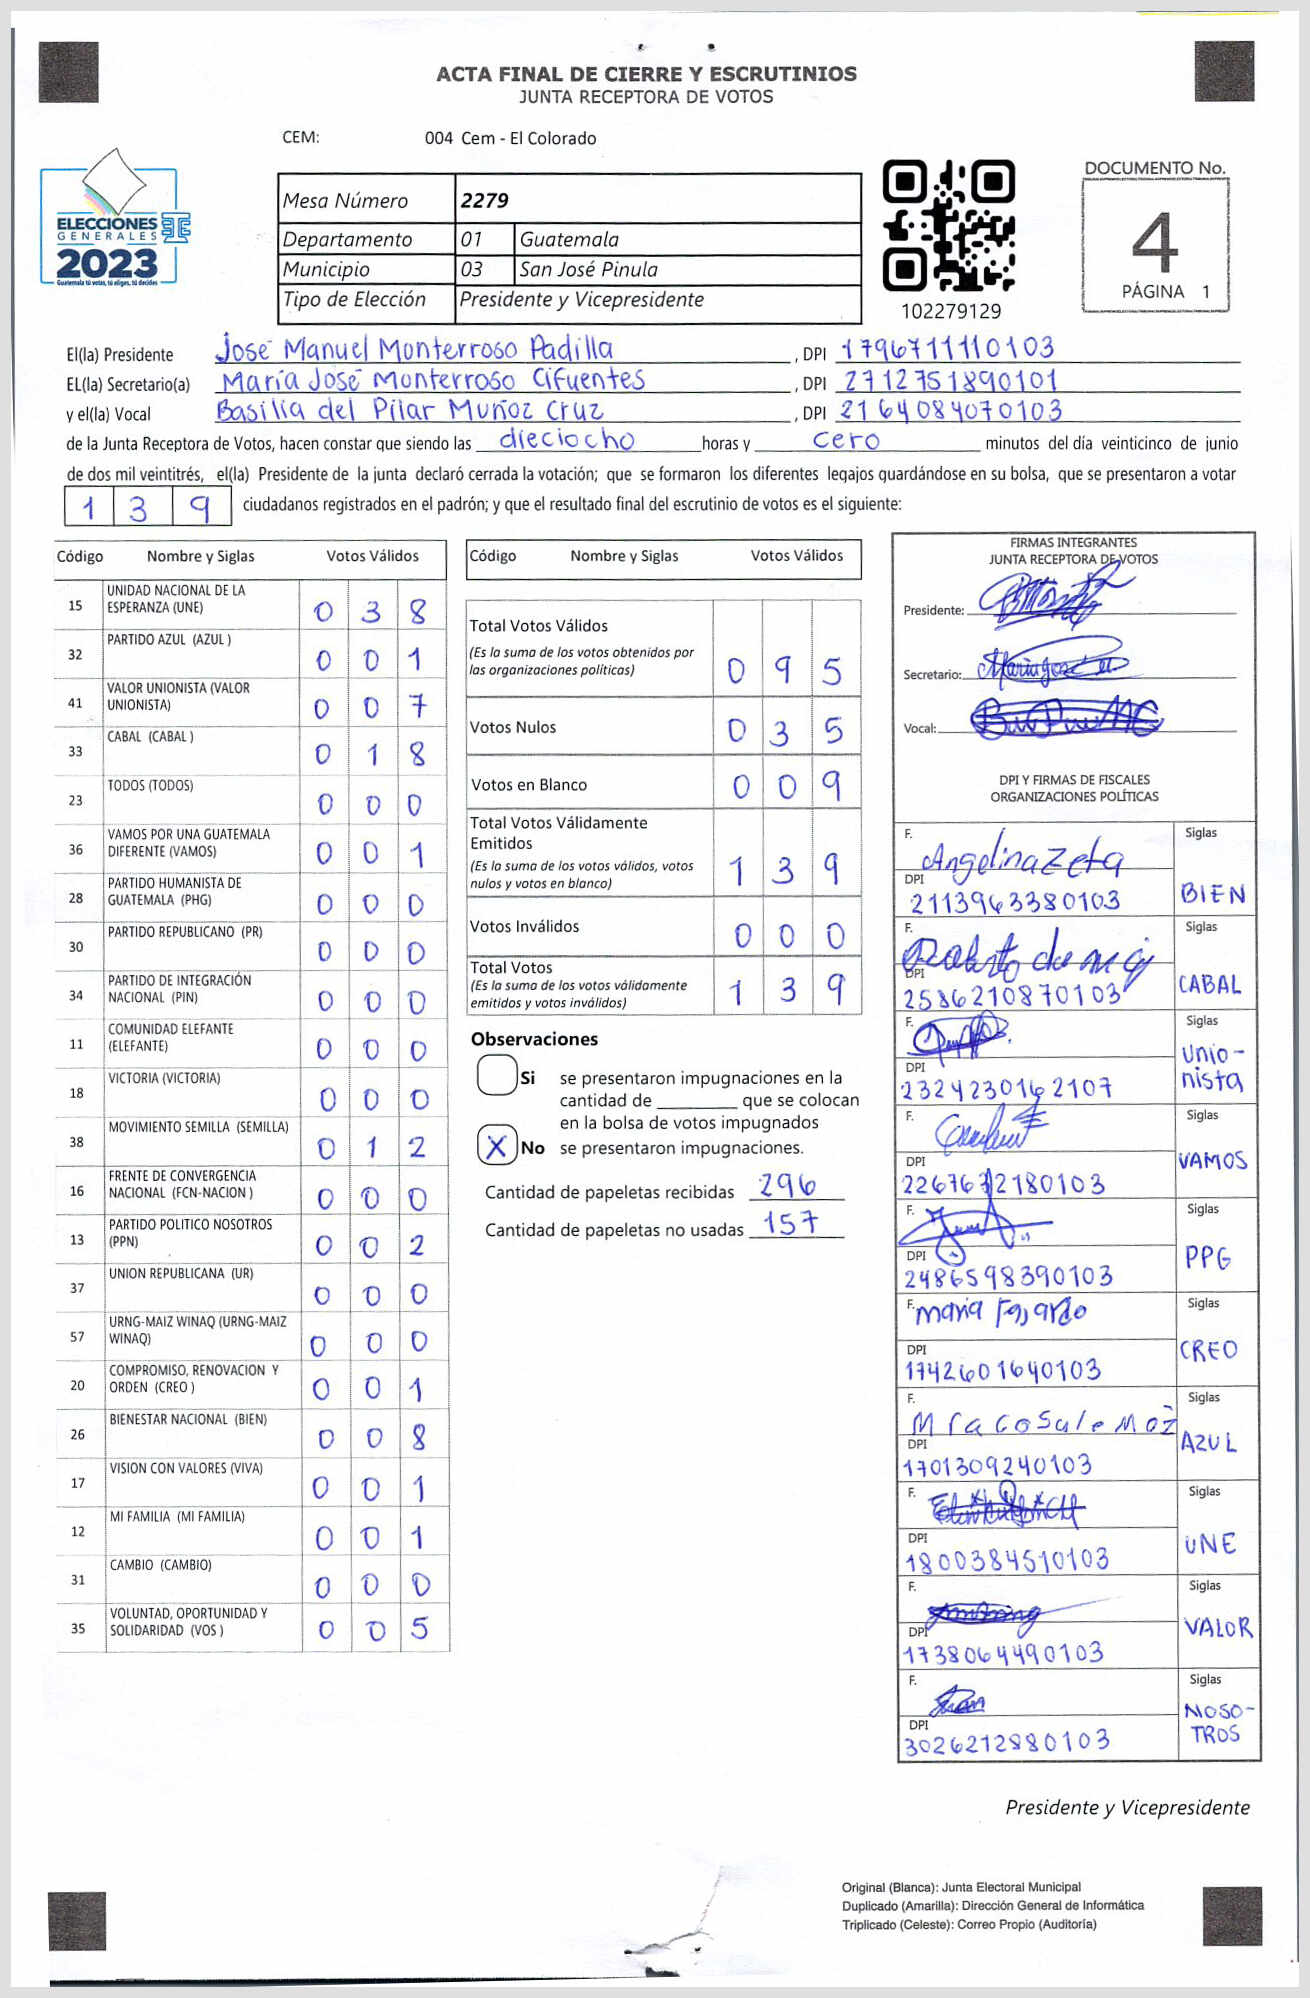 ACTA FINAL DE CIERRE Y ESCRUTINIOS
JUNTA RECEPTORA DE VOTOS
CEM: 004 Cem - El Colorado
ELECCIONES
GENERALES
2023
Guatemala tú votas, tú eliges, tú decides
Mesa Número 2279
Departamento 01 Guatemala
Municipio 03 San José Pinula
Tipo de Elección Presidente y Vicepresidente
102279129
DOCUMENTO No.
4
PÁGINA 1
El(la) Presidente José Manuel Monterroso Padilla, DPI 1796711110103
EL(la) Secretario(a) María José Monterroso Cifuentes, DPI 2712751890101
y el(la) Vocal Basilia del Pilar Muñoz Cruz, DPI 2164084070103
de la Junta Receptora de Votos, hacen constar que siendo las dieciocho horas y cero minutos del día veinticinco de junio
de dos mil veintitrés, el(la) Presidente de la junta declaró cerrada la votación; que se formaron los diferentes legajos guardándose en su bolsa, que se presentaron a votar
139 ciudadanos registrados en el padrón; y que el resultado final del escrutinio de votos es el siguiente:
Código Nombre y Siglas Votos Válidos
15 UNIDAD NACIONAL DE LA ESPERANZA (UNE) 038
32 PARTIDO AZUL (AZUL ) 001
41 VALOR UNIONISTA (VALOR UNIONISTA) 007
33 CABAL (CABAL ) 018
23 TODOS (TODOS) 000
36 VAMOS POR UNA GUATEMALA DIFERENTE (VAMOS) 001
28 PARTIDO HUMANISTA DE GUATEMALA (PHG) 000
30 PARTIDO REPUBLICANO (PR) 000
34 PARTIDO DE INTEGRACIÓN NACIONAL (PIN) 000
11 COMUNIDAD ELEFANTE (ELEFANTE) 000
18 VICTORIA (VICTORIA) 000
38 MOVIMIENTO SEMILLA (SEMILLA) 012
16 FRENTE DE CONVERGENCIA NACIONAL (FCN-NACION ) 000
13 PARTIDO POLITICO NOSOTROS (PPN) 002
37 UNION REPUBLICANA (UR) 000
57 URNG-MAIZ WINAQ (URNG-MAIZ WINAQ) 000
20 COMPROMISO, RENOVACION Y ORDEN (CREO ) 001
26 BIENESTAR NACIONAL (BIEN) 008
17 VISION CON VALORES (VIVA) 001
12 MI FAMILIA (MI FAMILIA) 001
31 CAMBIO (CAMBIO) 000
35 VOLUNTAD, OPORTUNIDAD Y SOLIDARIDAD (VOS ) 005
Código Nombre y Siglas Votos Válidos
Total Votos Válidos
(Es la suma de los votos obtenidos por las organizaciones políticas) 095
Votos Nulos 035
Votos en Blanco 009
Total Votos Válidamente Emitidos
(Es la suma de los votos válidos, votos nulos y votos en blanco) 139
Votos Inválidos 000
Total Votos
(Es la suma de los votos válidamente emitidos y votos inválidos) 139
Observaciones
Si se presentaron impugnaciones en la
cantidad de ________ que se colocan
en la bolsa de votos impugnados
X No se presentaron impugnaciones.
Cantidad de papeletas recibidas 296
Cantidad de papeletas no usadas 157
FIRMAS INTEGRANTES
JUNTA RECEPTORA DE VOTOS
Presidente:
Secretario:
Vocal:
DPI Y FIRMAS DE FISCALES
ORGANIZACIONES POLÍTICAS
F. Angelina Zeta Siglas
DPI 2113963380103 BIEN
F. Siglas
DPI 2586210870103 CABAL
F. Siglas
DPI 2324230162107 Unio-nista
F. Siglas
DPI VAMOS
F. Siglas
DPI 2486598390103 PPG
F. maria Fajardo Siglas
DPI 1742601640103 CREO
F. Siglas
DPI 1701309240103 AZUL
F. Siglas
DPI 1800384510103 UNE
F. Siglas
DPI 1738064490103 VALOR
F. Siglas
DPI 3026212880103 NOSO-TROS
Presidente y Vicepresidente
Original (Blanca): Junta Electoral Municipal
Duplicado (Amarilla): Dirección General de Informática
Triplicado (Celeste): Correo Propio (Auditoría)